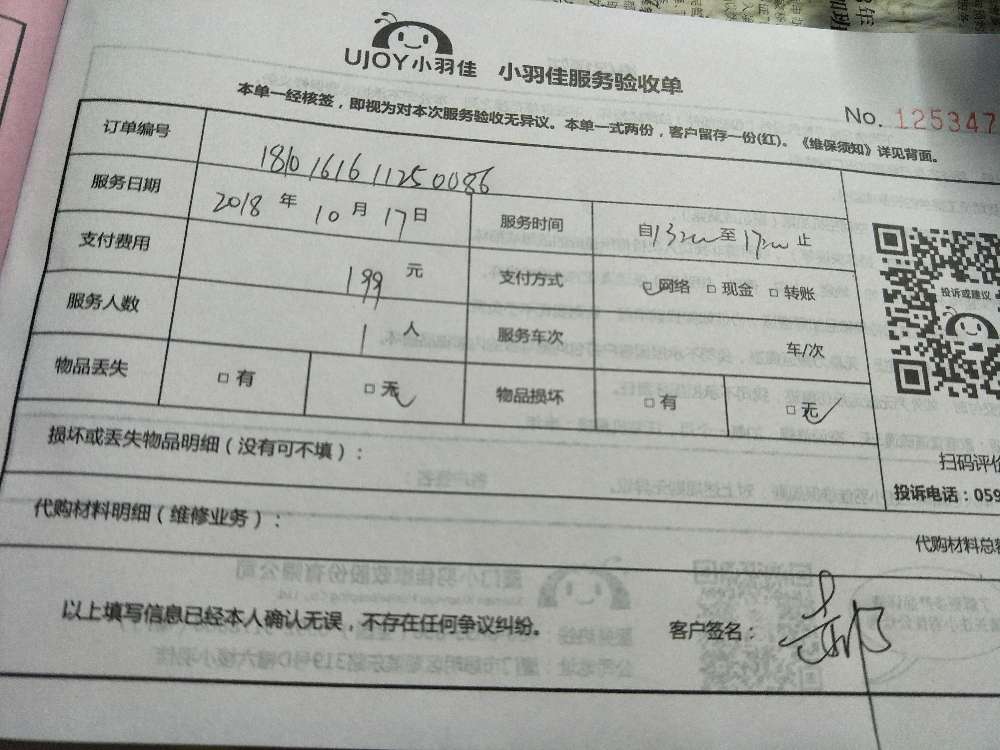 UJOY小羽佳 小羽佳服务验收单
本单一经核签，即视为对本次服务验收无异议。本单一式两份，客户留存一份(红)。《维保须知》详见背面。
No. 125347
订单编号 1810161611250086
服务日期 2018 年 10 月 17 日 服务时间 自1300至1700止
支付费用 199 元 支付方式 □网络 □现金 □转账
服务人数 1 人 服务车次 车/次
物品丢失 □有 □无 物品损坏 □有 □无
投诉或建议
扫码评价
投诉电话：059
损坏或丢失物品明细（没有可不填）：
代购材料明细（维修业务）：
代购材料总
以上填写信息已经本人确认无误，不存在任何争议纠纷。 客户签名：